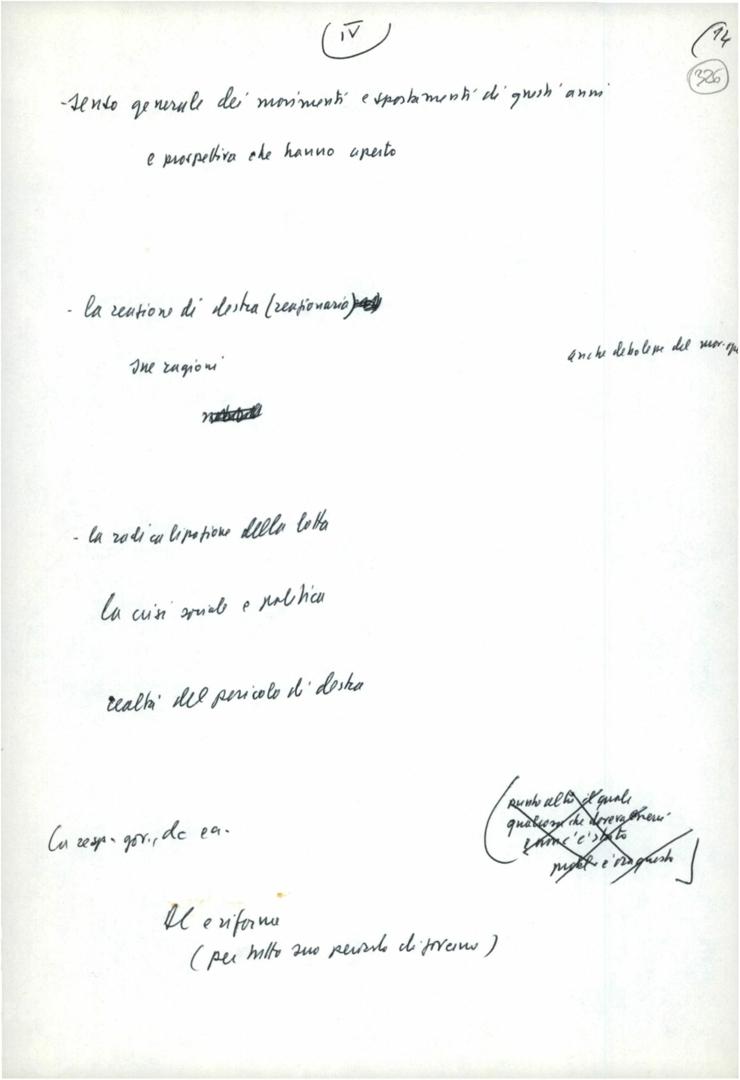 IV
14
326
- senso generale dei movimenti e spostamenti di questi anni
e prospettiva che hanno aperto
- la reazione di destra (reazionaria)
sue ragioni
anche debolezze del mov. op
- la radicalizzazione della lotta
la crisi sociale e politica
realtà del pericolo di destra
punto alto il quale
qualcosa che doveva
e non c'è stato
La resp. gov., dc ec.
e riforme
(per tutto suo periodo di governo)